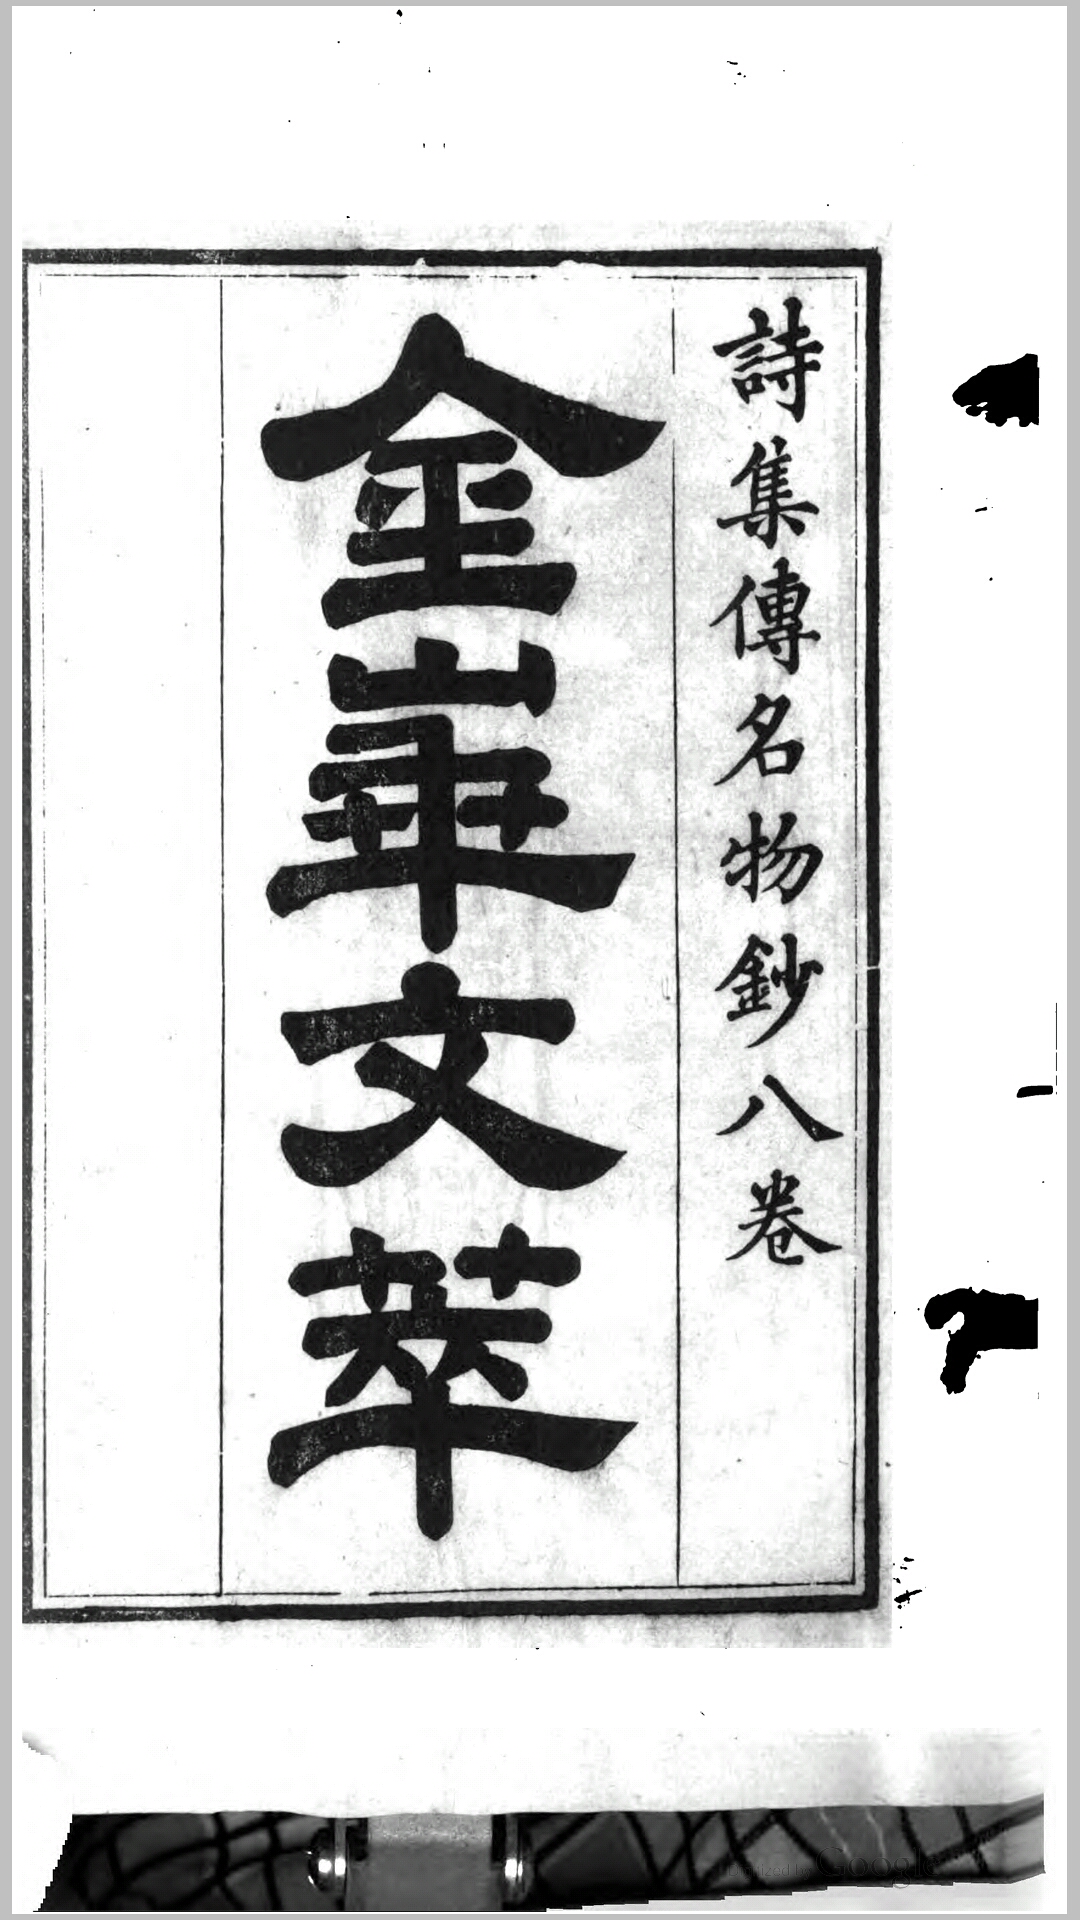 詩集傳名物鈔八卷
金華文萃
Digitized by Google